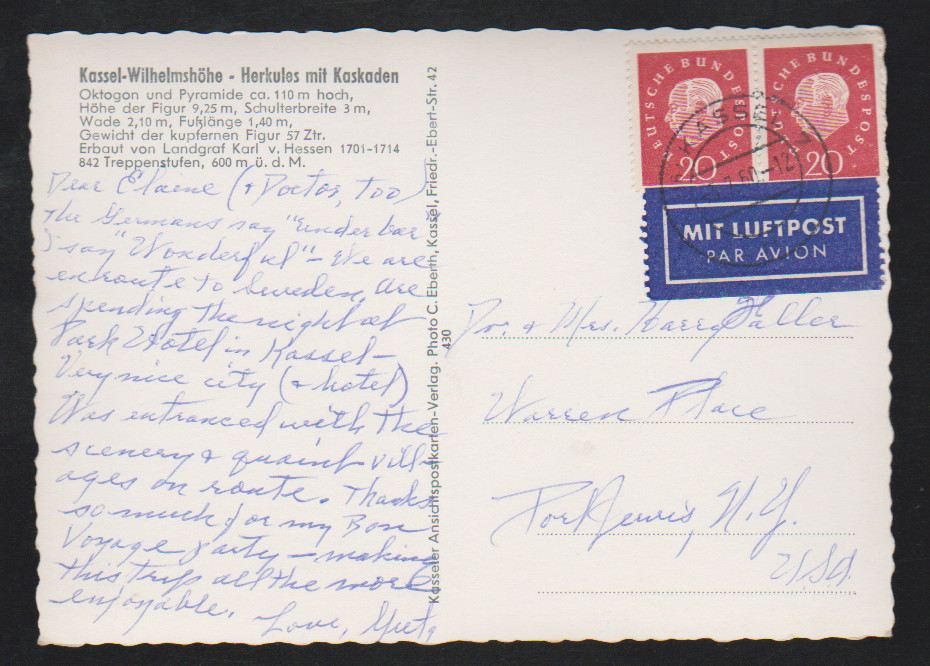 Kassel-Wilhelmshöhe - Herkules mit Kaskaden
Oktogon und Pyramide ca. 110 m hoch,
Höhe der Figur 9,25 m, Schulterbreite 3 m,
Wade 2,10 m, Fußlänge 1,40 m,
Gewicht der kupfernen Figur 57 Ztr.
Erbaut von Landgraf Karl v. Hessen 1701-1714
842 Treppenstufen, 600 m ü. d. M.
Dear Elaine (& Doctor, Too)
The Germans say "Underbar"
I say "Wonderful" - We are
en route to Sweden, are
spending the night at
Park Hotel in Kassel -
Very nice city (& hotel)
Was entranced with the
scenery & quaint vill-
ages en route. Thanks
so much for my Bon
Voyage party - making
this trip all the more
enjoyable.
Love,
Kasseler Ansichtspostkarten-Verlag. Photo C. Eberth, Kassel, Friedr.-Ebert-Str. 42
430
DEUTSCHE BUNDESPOST
20
DEUTSCHE BUNDESPOST
20
KASSEL 7
60.-12
MIT LUFTPOST
PAR AVION
Dr. & Mrs. Harry
Warren Place
Port Jervis, N.Y.
USA.